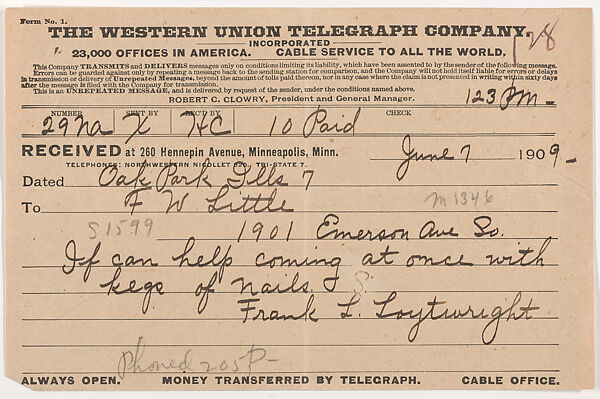 Form No. 1.
THE WESTERN UNION TELEGRAPH COMPANY.
INCORPORATED
23,000 OFFICES IN AMERICA. CABLE SERVICE TO ALL THE WORLD.
This Company TRANSMITS and DELIVERS messages only on conditions limiting its liability, which have been assented to by the sender of the following message.
Errors can be guarded against only by repeating a message back to the sending station for comparison, and the Company will not hold itself liable for errors or delays
in transmission or delivery of Unrepeated Messages, beyond the amount of tolls paid thereon, nor in any case where the claim is not presented in writing within sixty days
after the message is filed with the Company for transmission.
This is an UNREPEATED MESSAGE, and is delivered by request of the sender, under the conditions named above.
ROBERT C. CLOWRY, President and General Manager.
128
123 Pm-
NUMBER SENT BY REC'D BY CHECK
29 Na X HC 10 Paid
RECEIVED at 260 Hennepin Avenue, Minneapolis, Minn.
TELEPHONES: NORTHWESTERN NICOLLET 520, TRI-STATE 7.
June 7 1909-
Dated Oak Park Ills 7
To F W Little
M 1346
S1599 1901 Emerson Ave So.
If can help coming at once with
kegs of nails. & S.
Frank L. Loytwright
Phoned 205P-
ALWAYS OPEN. MONEY TRANSFERRED BY TELEGRAPH. CABLE OFFICE.